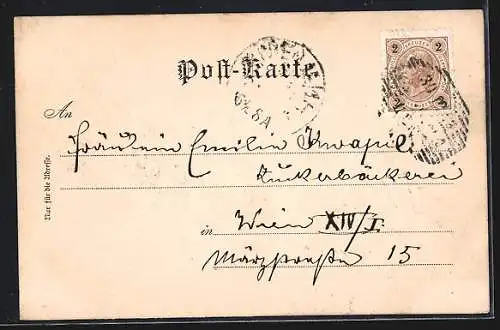 Post-Karte
2 2
An
Fräulein Emilie Kwapil
Zuckerbäckerei
in Wien XIV/1.
Märzstraße 15
Nur für die Adresse.